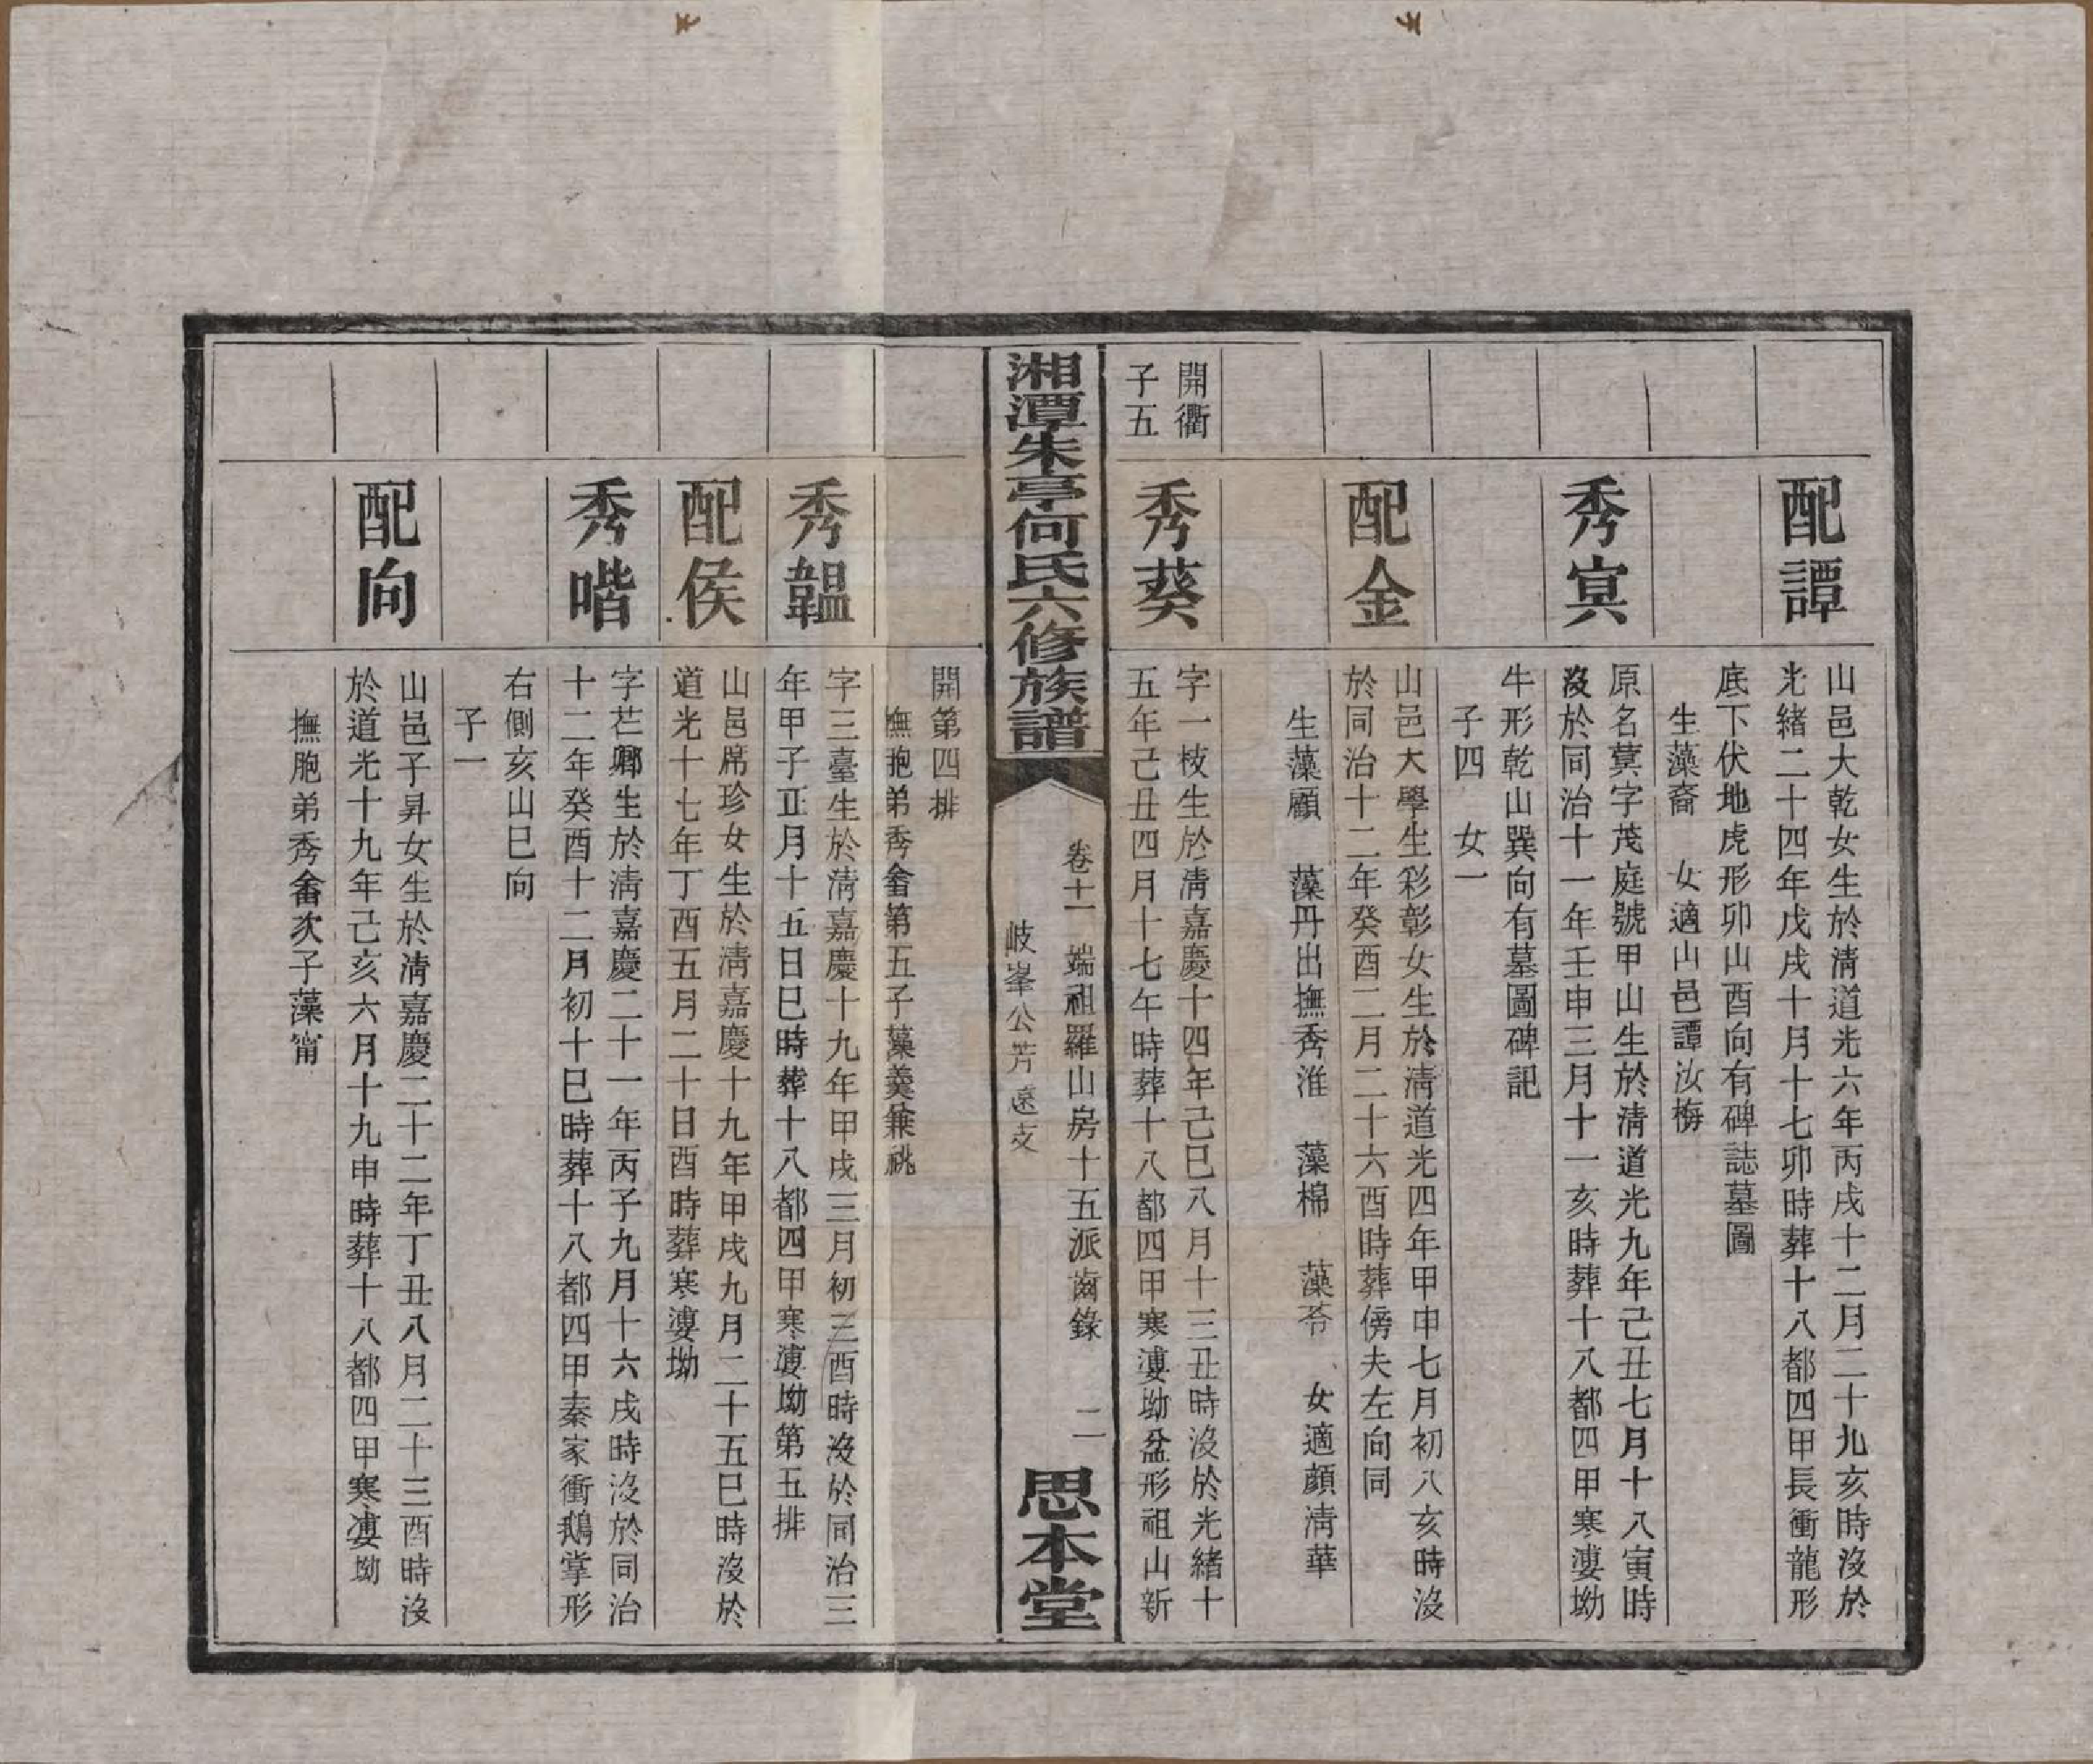 配譚
山邑大乾女生於清道光六年丙戌十二月二十九亥時沒於
光緒二十四年戊戌十月十七卯時葬十八都四甲長衝龍形
底下伏地虎形卯山酉向有碑誌墓圖
生藻裔　女適山邑譚汝梅
秀寞
原名蓂字茂庭號甲山生於清道光九年己丑七月十八寅時
沒於同治十一年壬申三月十一亥時葬十八都四甲寒漊坳
牛形乾山巽向有墓圖碑記
子四　女一
配金
山邑大學生彩彰女生於清道光四年甲申七月初八亥時沒
於同治十二年癸酉二月二十六酉時葬傍夫左向同
生藻顧　藻丹出撫秀淮　藻棉　藻苓　女適顏清華
開衢
子五
秀葵
字一枝生於清嘉慶十四年己巳八月十三丑時沒於光緒十
五年己丑四月十七午時葬十八都四甲寒漊坳盆形祖山新
湘潭朱亭何氏六修族譜
卷十一　端祖羅山房十五派齒錄　二
岐峯公芳遠支
思本堂
開第四排
撫胞弟秀畬第五子藻羲兼祧
秀韞
字三臺生於清嘉慶十九年甲戌三月初三酉時沒於同治三
年甲子正月十五日巳時葬十八都四甲寒漊坳第五排
配侯
山邑席珍女生於清嘉慶十九年甲戌九月二十五巳時沒於
道光十七年丁酉五月二十日酉時葬寒漊坳
秀喈
字芒鄉生於清嘉慶二十一年丙子九月十六戌時沒於同治
十二年癸酉十二月初十巳時葬十八都四甲秦家衝鵝掌形
右側亥山巳向
子一
配向
山邑子昇女生於清嘉慶二十二年丁丑八月二十三酉時沒
於道光十九年己亥六月十九申時葬十八都四甲寒漊坳
撫胞弟秀畬次子藻甯